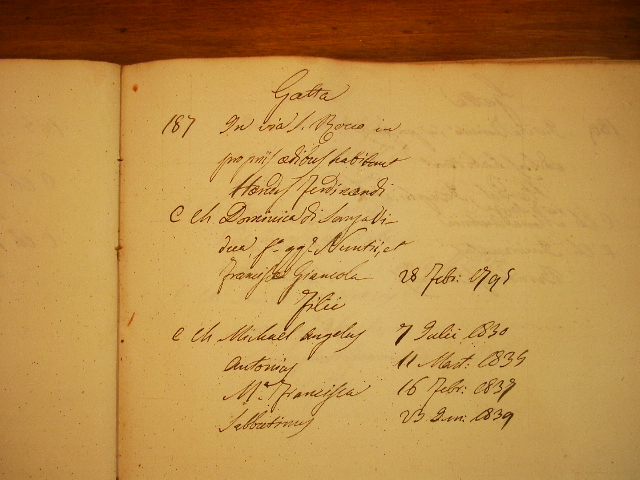 Gatta
187 In via S. Rocco in
propriis ædibus habitant
Hærdes Ferdinandi
C Ch Dominica di Sanza Vi-
dua, f.ª qq.m Nuntii, et
Franciscæ Giancola 28 Febr: 1795
Filii
C Ch Michael Angelus 7 Julii 1830
Antonius 11 Mart: 1835
M.ª Francisca 16 Febr: 1837
Sabbatinus 23 Jun: 1839